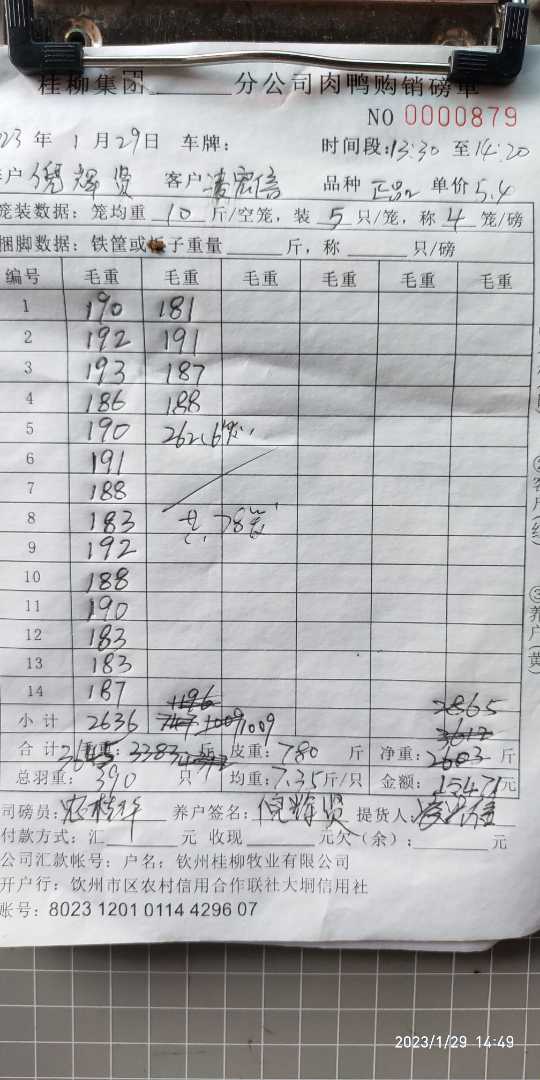 桂柳集团 分公司肉鸭购销磅单
NO 0000879
23 年 1 月 29 日 车牌: 时间段: 13:30 至 14:20
户 倪辉贤 客户 信 品种 正品 单价 5.4
笼装数据: 笼均重 10 斤/空笼, 装 5 只/笼, 称 4 笼/磅
捆脚数据: 铁筐或 子重量 斤, 称 只/磅
编号 毛重 毛重 毛重 毛重 毛重 毛重
1 190 181
2 192 191
3 193 187
4 186 188
5 190 262(6笼)
6 191
7 188
8 183 共 78笼
9 192
10 188
11 190
12 183
13 183
14 187 1196 2865
小计 2636 747 1009 1009 3612
合计 3645 重: 3383 斤 皮重: 780 斤 净重: 2603 斤
总羽重: 390 只 均重: 7.35 斤/只 金额: 15471 元
司磅员: 养户签名: 倪辉贤 提货人:
付款方式: 汇 元 收现 元欠(余): 元
公司汇款帐号: 户名: 钦州桂柳牧业有限公司
开户行: 钦州市区农村信用合作联社大垌信用社
账号: 8023 1201 0114 4296 07
②客户(红)
③养户(黄)
2023/1/29 14:49